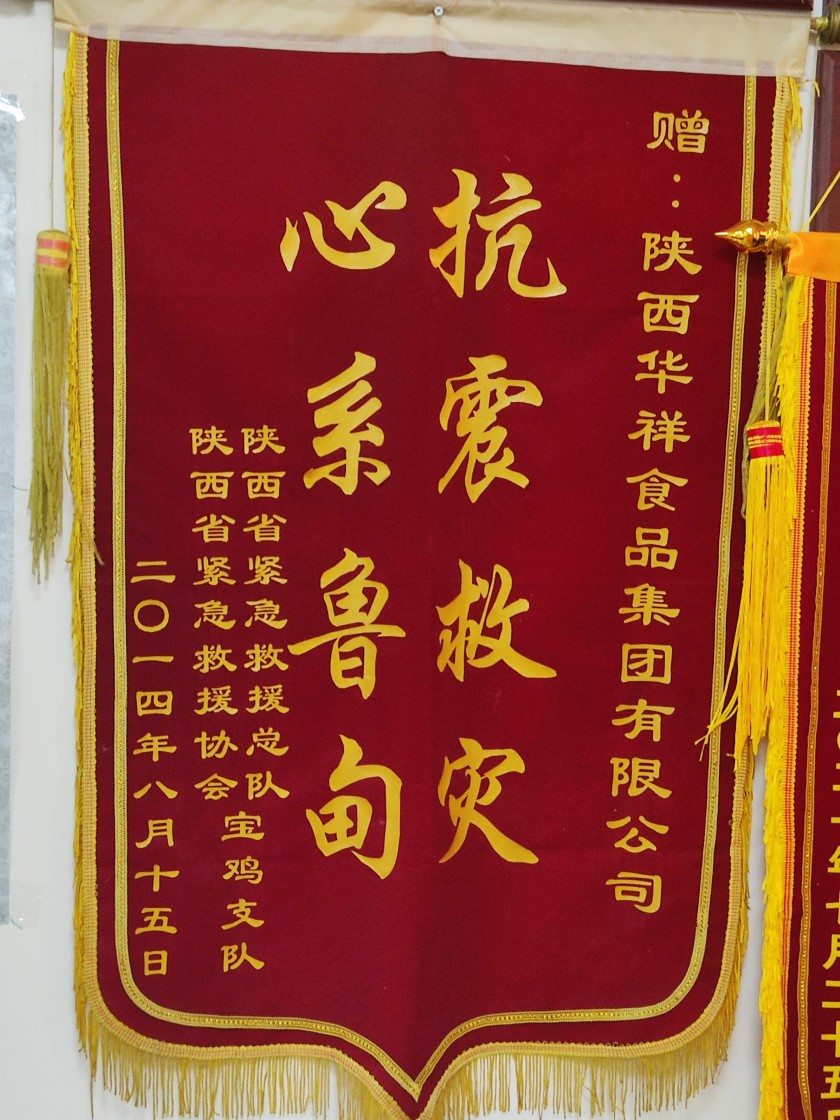 赠：陕西华祥食品集团有限公司
抗震救灾
心系鲁甸
陕西省紧急救援总队
陕西省紧急救援协会
宝鸡支队
二〇一四年八月十五日
年七月二十五